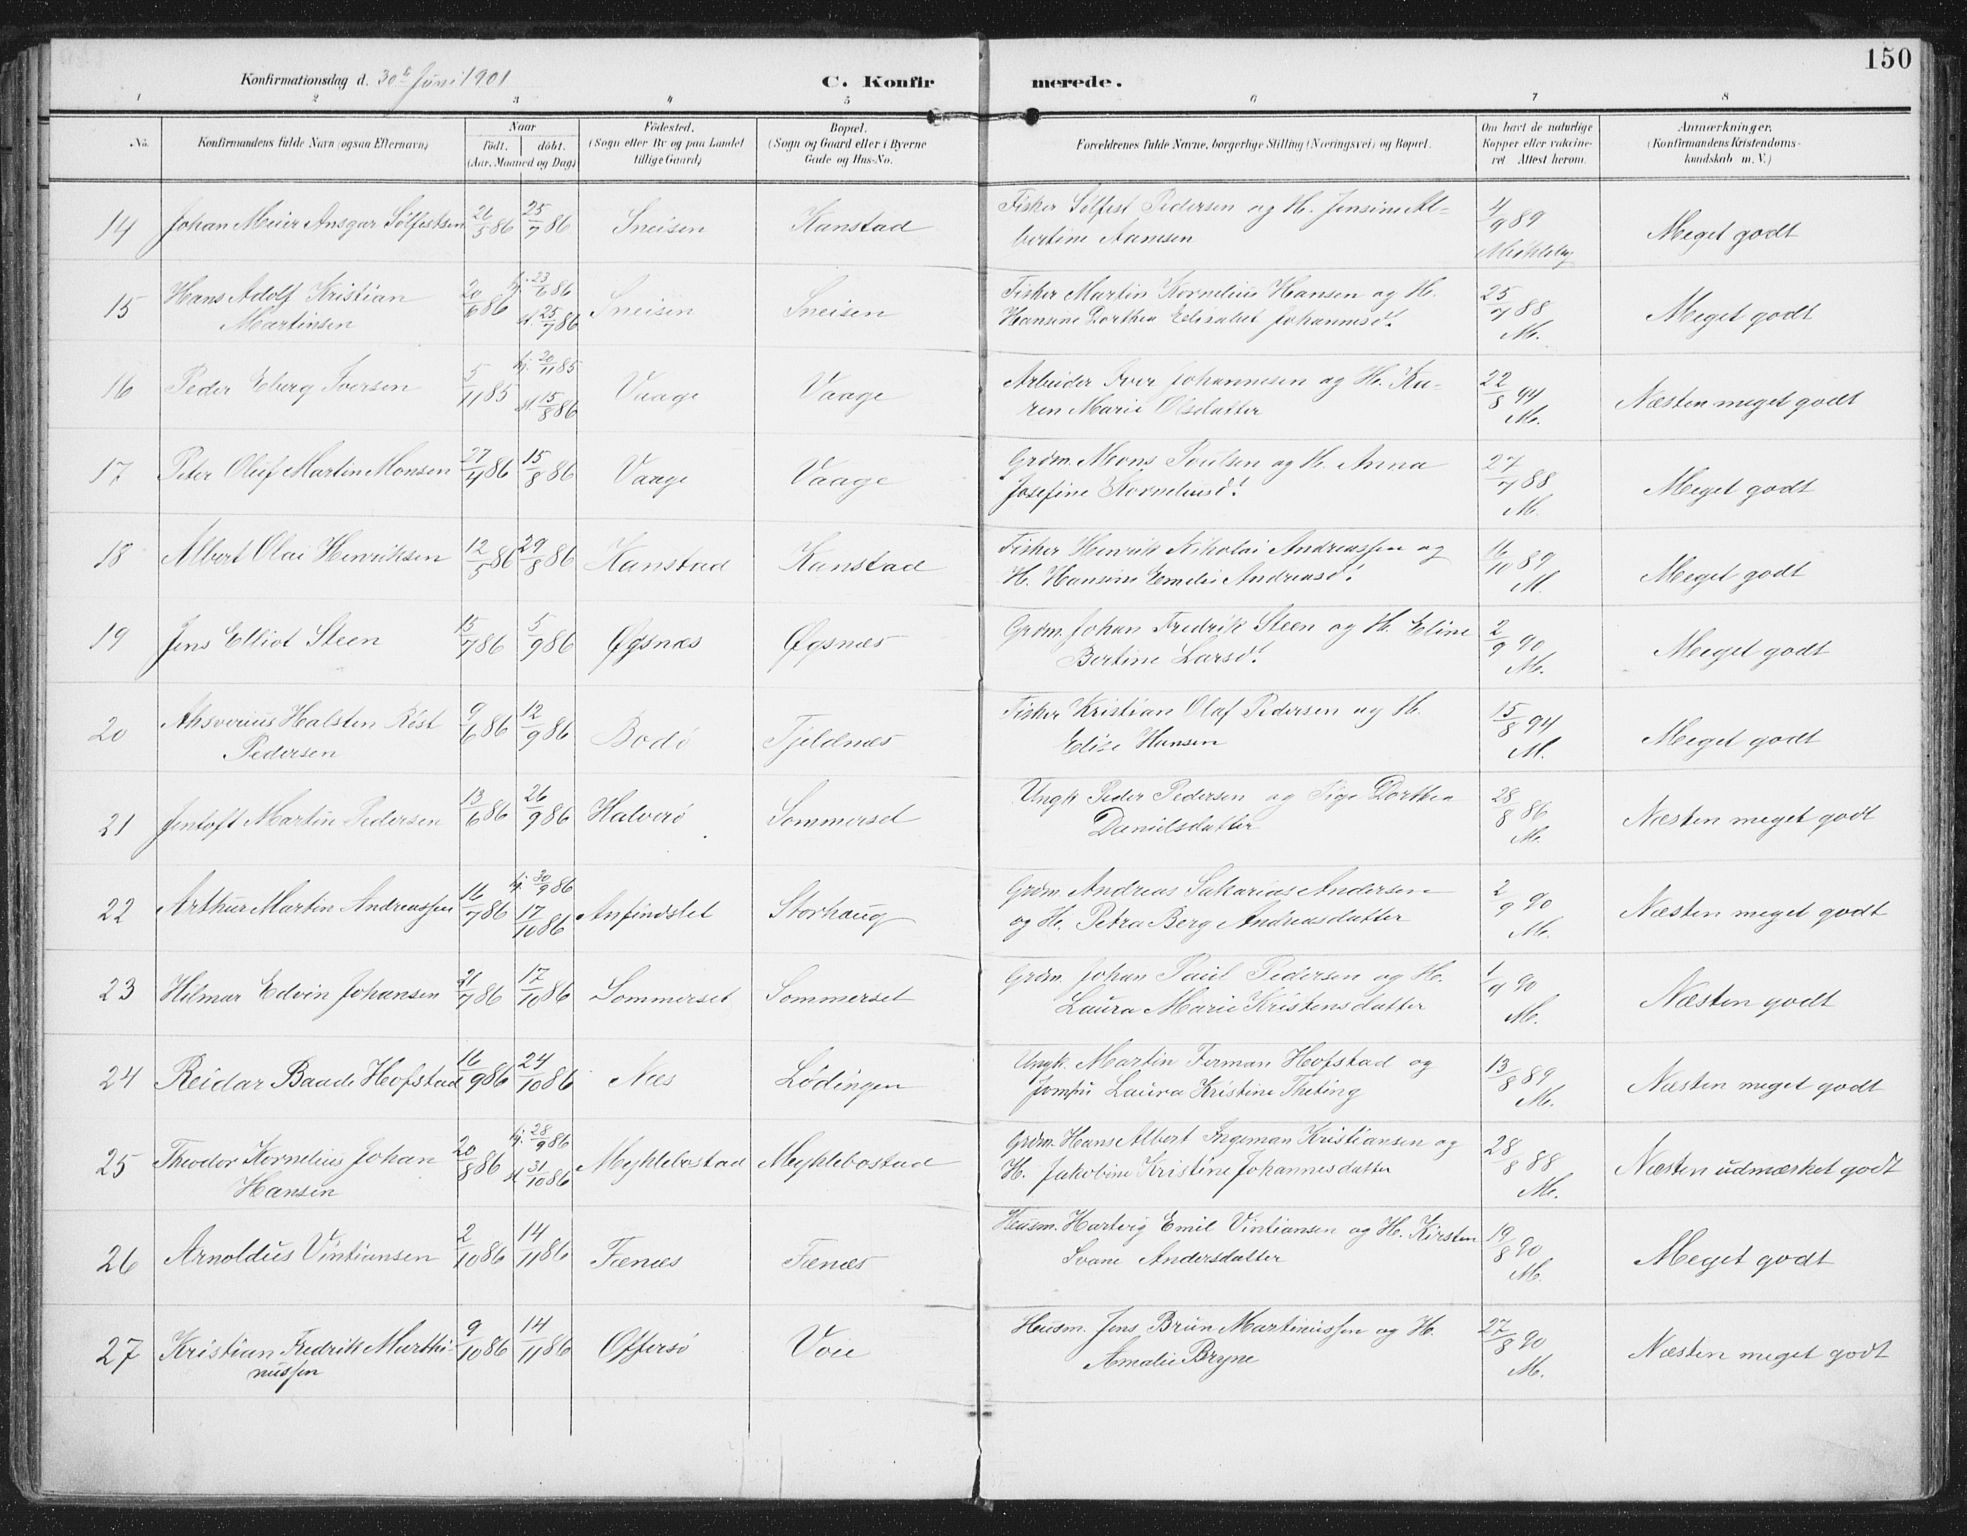 150
Konfirmationsdag d. 30te Juni 1901
C. Konfirmerede.
1 2 3 4 5 6 7 8
No. Konfirmandens fulde Navn (ogsaa Efternavn) Naar født. døbt. (Aar, Maaned og Dag) Fødested. (Sogn eller By og paa Landet tillige Gaard) Bopæl. (Sogn og Gaard eller i Byerne Gade og Hus-No. Forældrenes fulde Navne, borgerlige Stilling (Næringsvei) og Bopæl. Om havt de naturlige Kopper eller vakcineret. Attest herom. Anmærkninger. (Konfirmandens Kristendomskundskab m. V.)
14 Johan Meier Ansgar Sølfestsen 26/5 86 25/7 86 Sneisen Kanstad Fisker Sølfest Pedersen og H. Jensine Albertine Aamsen 4/9 89 Meget godt
15 Hans Adolf Kristian Martinsen 20/6 86 hj. 23/6 86 st. 25/7 86 Sneisen Sneisen Fisker Martin Kornelius Hansen og H. Hansine Dorthea Elisabet Johannesd. 25/7 88 M. Meget godt
16 Peder Eberg Iversen 5/11 85 hj. 20/11 85 st. 15/8 86 Vaage Vaage Arbeider Iver Johannesen og H. Karen Marie Olsdatter 22/8 94 M. Næsten meget godt
17 Peter Oluf Martin Monsen 27/4 86 15/8 86 Vaage Vaage Grdm. Mons Poulsen og H. Anna Josefine Korneliusd. 27/7 88 M. Meget godt
18 Albert Olai Henriksen 12/5 86 29/8 86 Kanstad Kanstad Fisker Henrik Nikolai Andreassen og H. Hansine Emelie Andreasd. 16/10 89 M. Meget godt
19 Jens Elliot Steen 15/7 86 5/9 86 Øgsnæs Øgsnæs Grdm. Johan Fredrik Steen og H. Eline Bertine Larsd. 2/9 90 M. Meget godt
20 Ahsverius Halsten Røst Pedersen 9/6 86 12/9 86 Bodø Tjeldnæs Fisker Kristian Olaf Pedersen og H. Elise Hansen 15/8 94 M. Meget godt
21 Jentoft Martin Pedersen 13/6 86 26/9 86 Halverø Sommerset Ungk. Peder Pedersen og Pige Dorthea Danielsdatter 28/8 86 M. Næsten meget godt
22 Arthur Martin Andreassen 16/7 86 hj. 30/9 86 17/10 86 Anfindslet Storhaug Grdm. Andreas Sakarias Andersen og H. Petra Berg Andreasdatter 2/9 90 M. Næsten meget godt
23 Hilmar Edvin Johansen 21/7 86 17/10 86 Sommerset Sommerset Grdm. Johan Paul Pedersen og H. Laura Marie Kristensdatter 1/9 90 M. Næsten godt
24 Reidar Baade Hofstad 16/9 86 24/10 86 Næs Lødingen Ungk. Martin Ferman Hofstad og Jomfru Laura Kristine Theting 13/8 89 M. Næsten meget godt
25 Theodor Kornelius Johan Hansen 20/8 86 hj. 28/9 86 st. 31/10 86 Myklebostad Myklebostad Grdm. Hans Albert Ingeman Kristiansen og H. Jakobine Kristine Johannesdatter 28/8 88 M. Næsten udmærket godt
26 Arnoldus Vintiansen 2/10 86 14/11 86 Fænæs Fænæs Husm. Hartvig Emil Vintiansen og H. Kirsten Svane Andersdatter 19/8 90 M. Meget godt
27 Kristian Fredrik Marthinussen 9/10 86 14/11 86 Offersø Voie Husm. Jens Bruun Martinussen og H. Amalie Bryne 27/8 90 M. Næsten meget godt